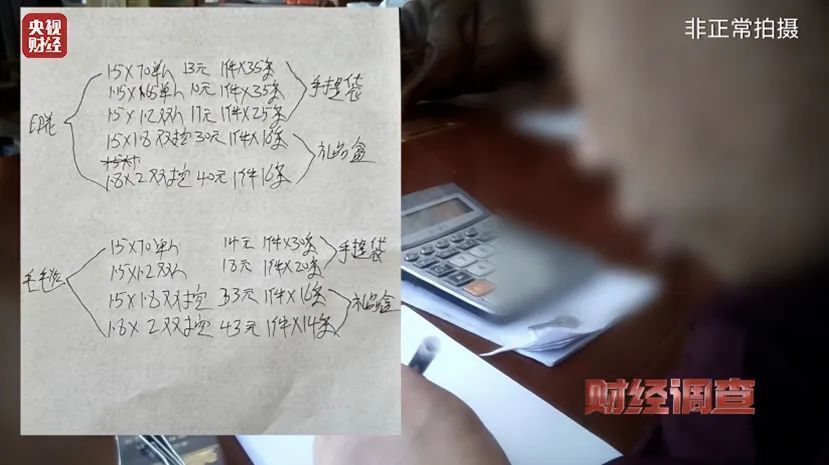 央视
财经
非正常拍摄
印花
1.5×70单人 13元 1件×35条
1.15×1.65单 10元 1件×35条
1.5×1.2双人 17元 1件×25条
手提袋
1.5×1.8双控 30元 1件×18条
1.8×2双控 40元 1件16条
礼品盒
1.5×70单人 14元 1件×30条
1.5×1.2双人 18元 1件×20条
手提袋
1.5×1.8双控 33元 1件×16条
1.8×2双控 43元 1件×14条
礼品盒
财经调查